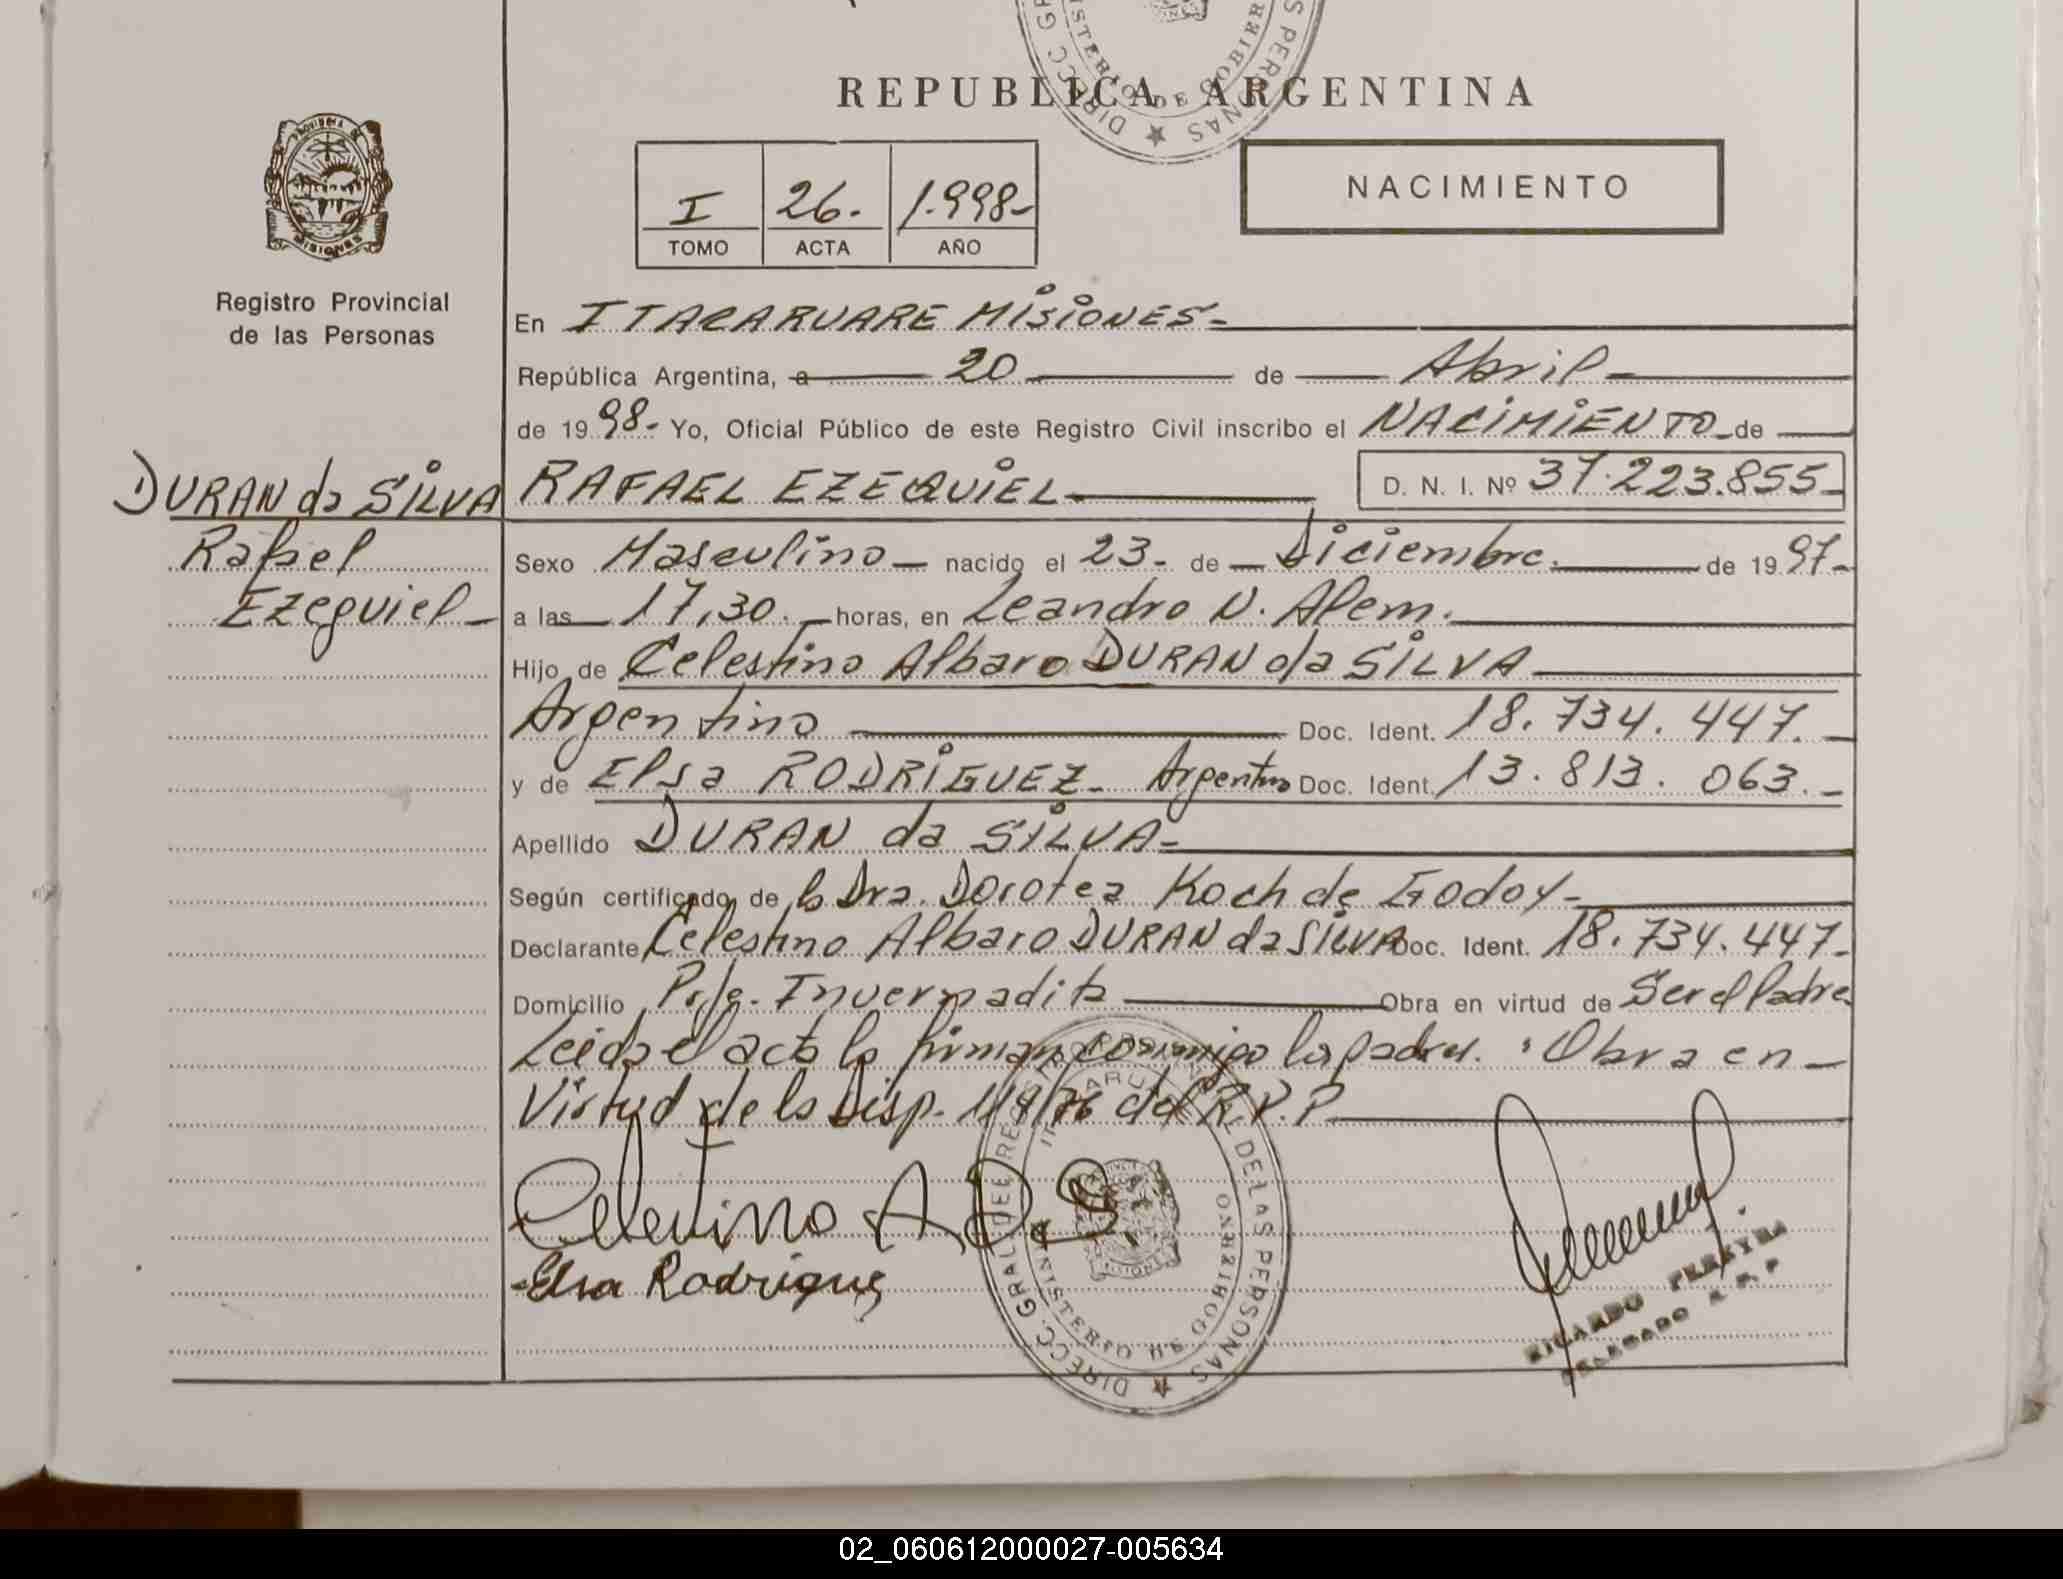 REPUBLICA ARGENTINA
NACIMIENTO
I 26. 1.998-
TOMO ACTA AÑO
PROVINCIA DE
MISIONES
Registro Provincial
de las Personas
En ITACARUARE MISIONES-
República Argentina, a 20 de Abril
de 1998- Yo, Oficial Público de este Registro Civil inscribo el NACIMIENTO de
DURAN da SILVA
Rafael
Ezequiel
RAFAEL EZEQUIEL D. N. I. Nº 37.223.855-
Sexo Masculino nacido el 23- de Diciembre. de 1997-
a las 17,30. horas, en Leandro N. Alem.
Hijo de Celestino Albaro DURAN da SILVA
Argentino Doc. Ident. 18.734.447.-
y de Elsa RODRIGUEZ- Argentina Doc. Ident. 13.813.063.-
Apellido DURAN da SILVA-
Según certificado de la Dra. Dorotea Koch de Godoy-
Declarante Celestino Albaro DURAN da SILVA Doc. Ident. 18.734.447-
Domicilio Pje. Invernadita Obra en virtud de Ser el Padre
Leida el acta la firman conmigo los padres. Obra en
Virtud de la Disp. /76 del R.P.P
Celestino A. D. S.
Elsa Rodriguez
RICARDO PEREYRA
DELEGADO R. P. P.
DIRECC. GRAL. DEL REGISTRO PROVINCIAL DE LAS PERSONAS
MINISTERIO DE GOBIERNO
02_060612000027-005634